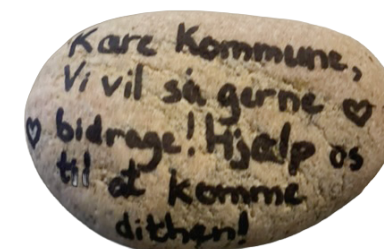 Kære Kommune,
Vi vil så gerne ♡
♡ bidrage! Hjælp os
til at komme
dithen!